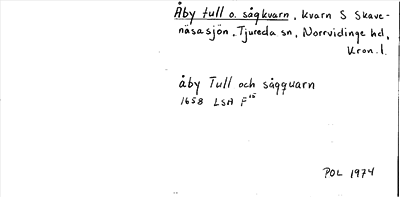 Åby tull o. sågkvarn, kvarn S Skave-
näsasjön, Tjureda sn, Norrvidinge hd,
Kron. l.
åby Tull och sågquarn
1658 LSA F15
POL 1974